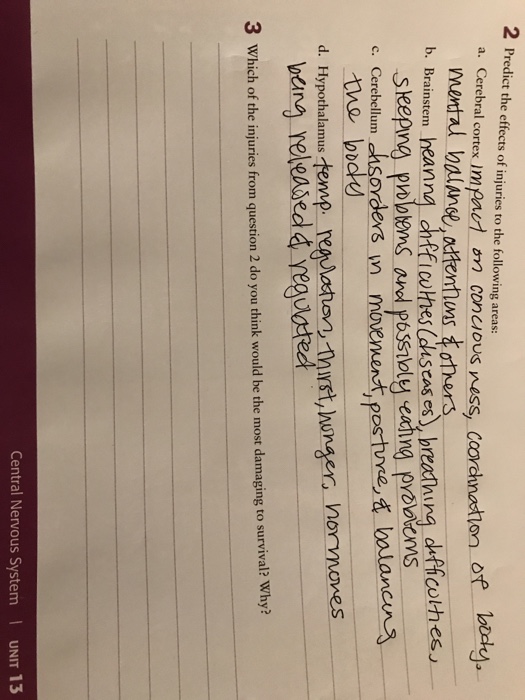 2 Predict the effects of injuries to the following areas:
a. Cerebral cortex impact on conciousness, coordination of body.
mental balance, attentions & others
b. Brainstem hearing difficulties (diseases), breathing difficulties,
sleeping problems and possibly eating problems
c. Cerebellum disorders in movement, posture, & balancing
the body
d. Hypothalamus temp. regulation, thirst, hunger, hormones
being released & regulated
3 Which of the injuries from question 2 do you think would be the most damaging to survival? Why?
Central Nervous System | UNIT 13